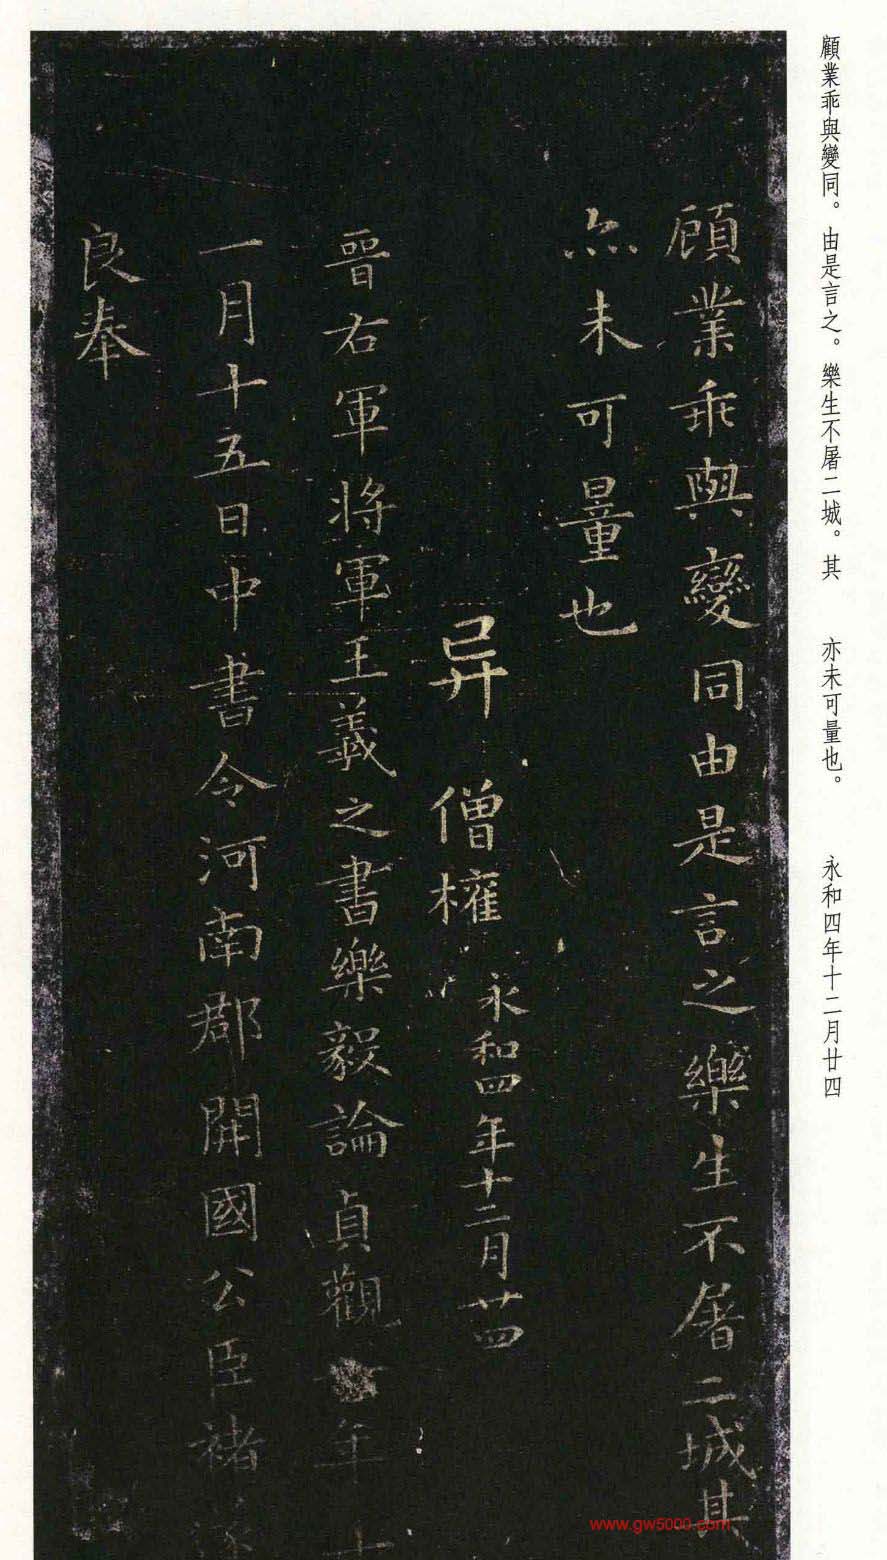 顧業乖與變同。由是言之。樂生不屠二城。其　亦未可量也。　永和四年十二月廿四
顧業乖與變同由是言之樂生不屠二城其
亦未可量也
异　僧權　永和四年十二月廿四
晉右軍將軍王羲之書樂毅論貞觀年十
一月十五日中書令河南郡開國公臣褚
良奉
www.gw5000.com